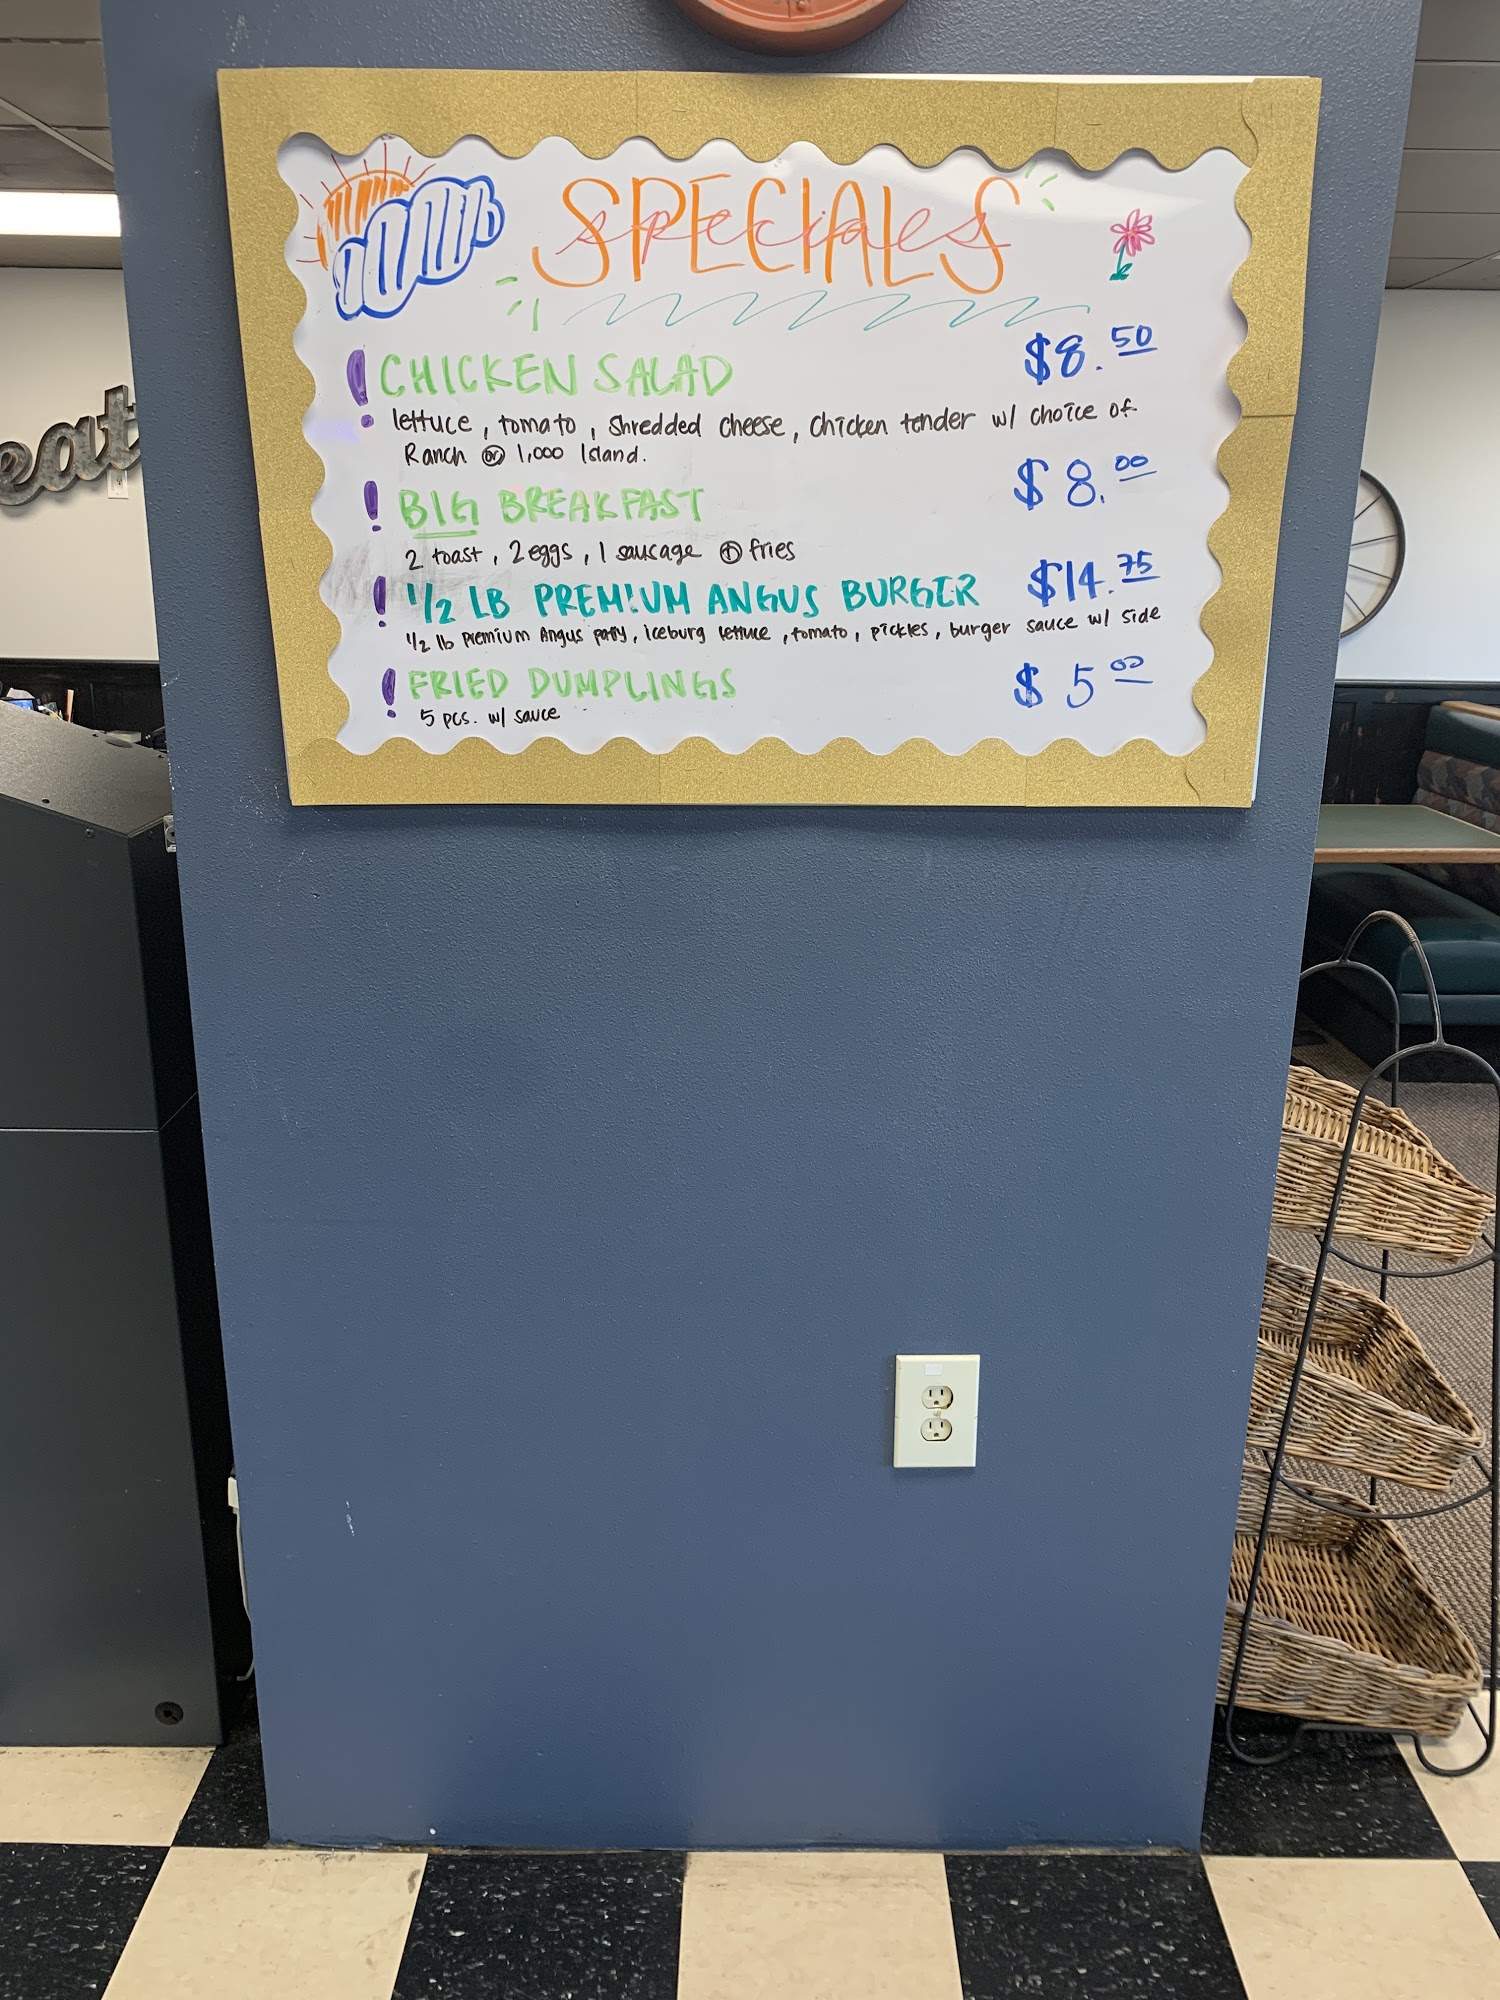 SPECIALS
specials
! CHICKEN SALAD $8.50
lettuce, tomato, shredded cheese, chicken tender w/ choice of
Ranch or 1,000 Island.
! BIG BREAKFAST $8.00
2 toast, 2 eggs, 1 sausage + fries
! 1/2 LB PREMIUM ANGUS BURGER $14.75
1/2 lb premium Angus patty, iceburg lettuce, tomato, pickles, burger sauce w/ side
! FRIED DUMPLINGS $5.00
5 pcs. w/ sauce
eat